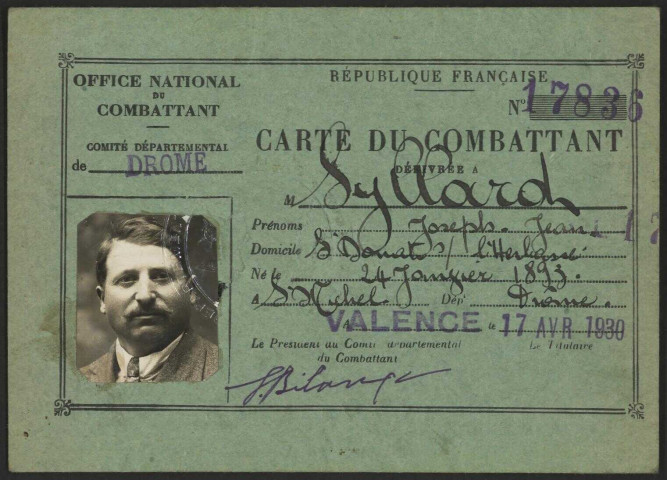 OFFICE NATIONAL
DU
COMBATTANT
COMITÉ DÉPARTEMENTAL
de DROME
RÉPUBLIQUE FRANÇAISE
N° 17836
CARTE DU COMBATTANT
DÉLIVRÉE A
M Syllard
Prénoms Joseph - Jean
Domicile St Donat s/ l'Herbasse
Né le 24 Janvier 1893
A St Michel Dép' Drome.
A VALENCE le 17 AVR 1930
Le Président au Comité départemental Le Titulaire
du Combattant